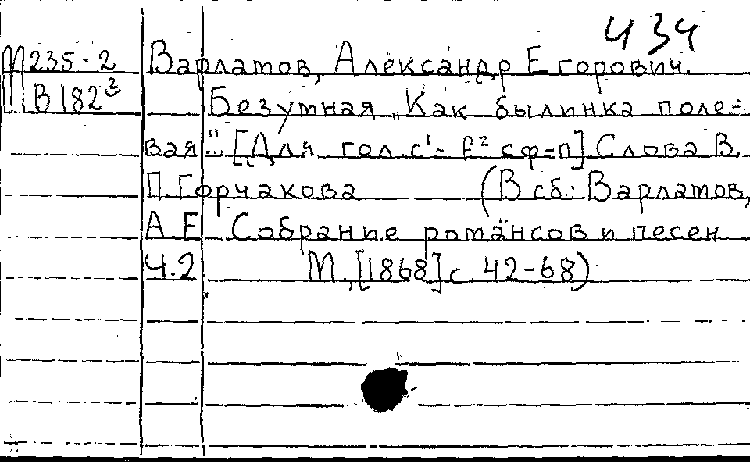 434
М235-2 Варламов, Александр Егорович.
В182³ Безумная „Как былинка поле=
вая". [Для гол. c¹-f² с ф-п] Слова В.
П. Горчакова (В сб: Варламов,
А Е Собрание романсов и песен
Ч.2 М, [1868] с 42-68)